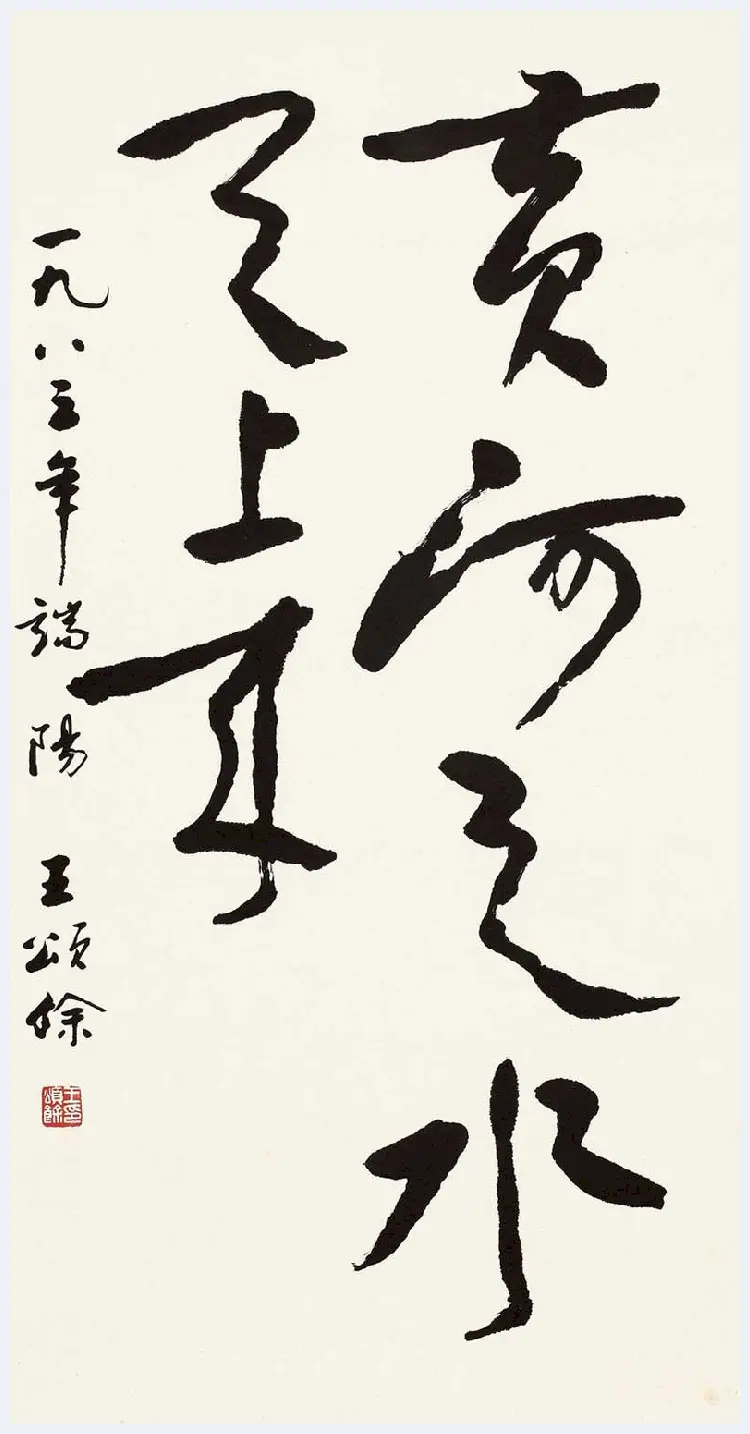 黄河之水
天上来
一九八五年端陽 王頌餘
王印
頌餘